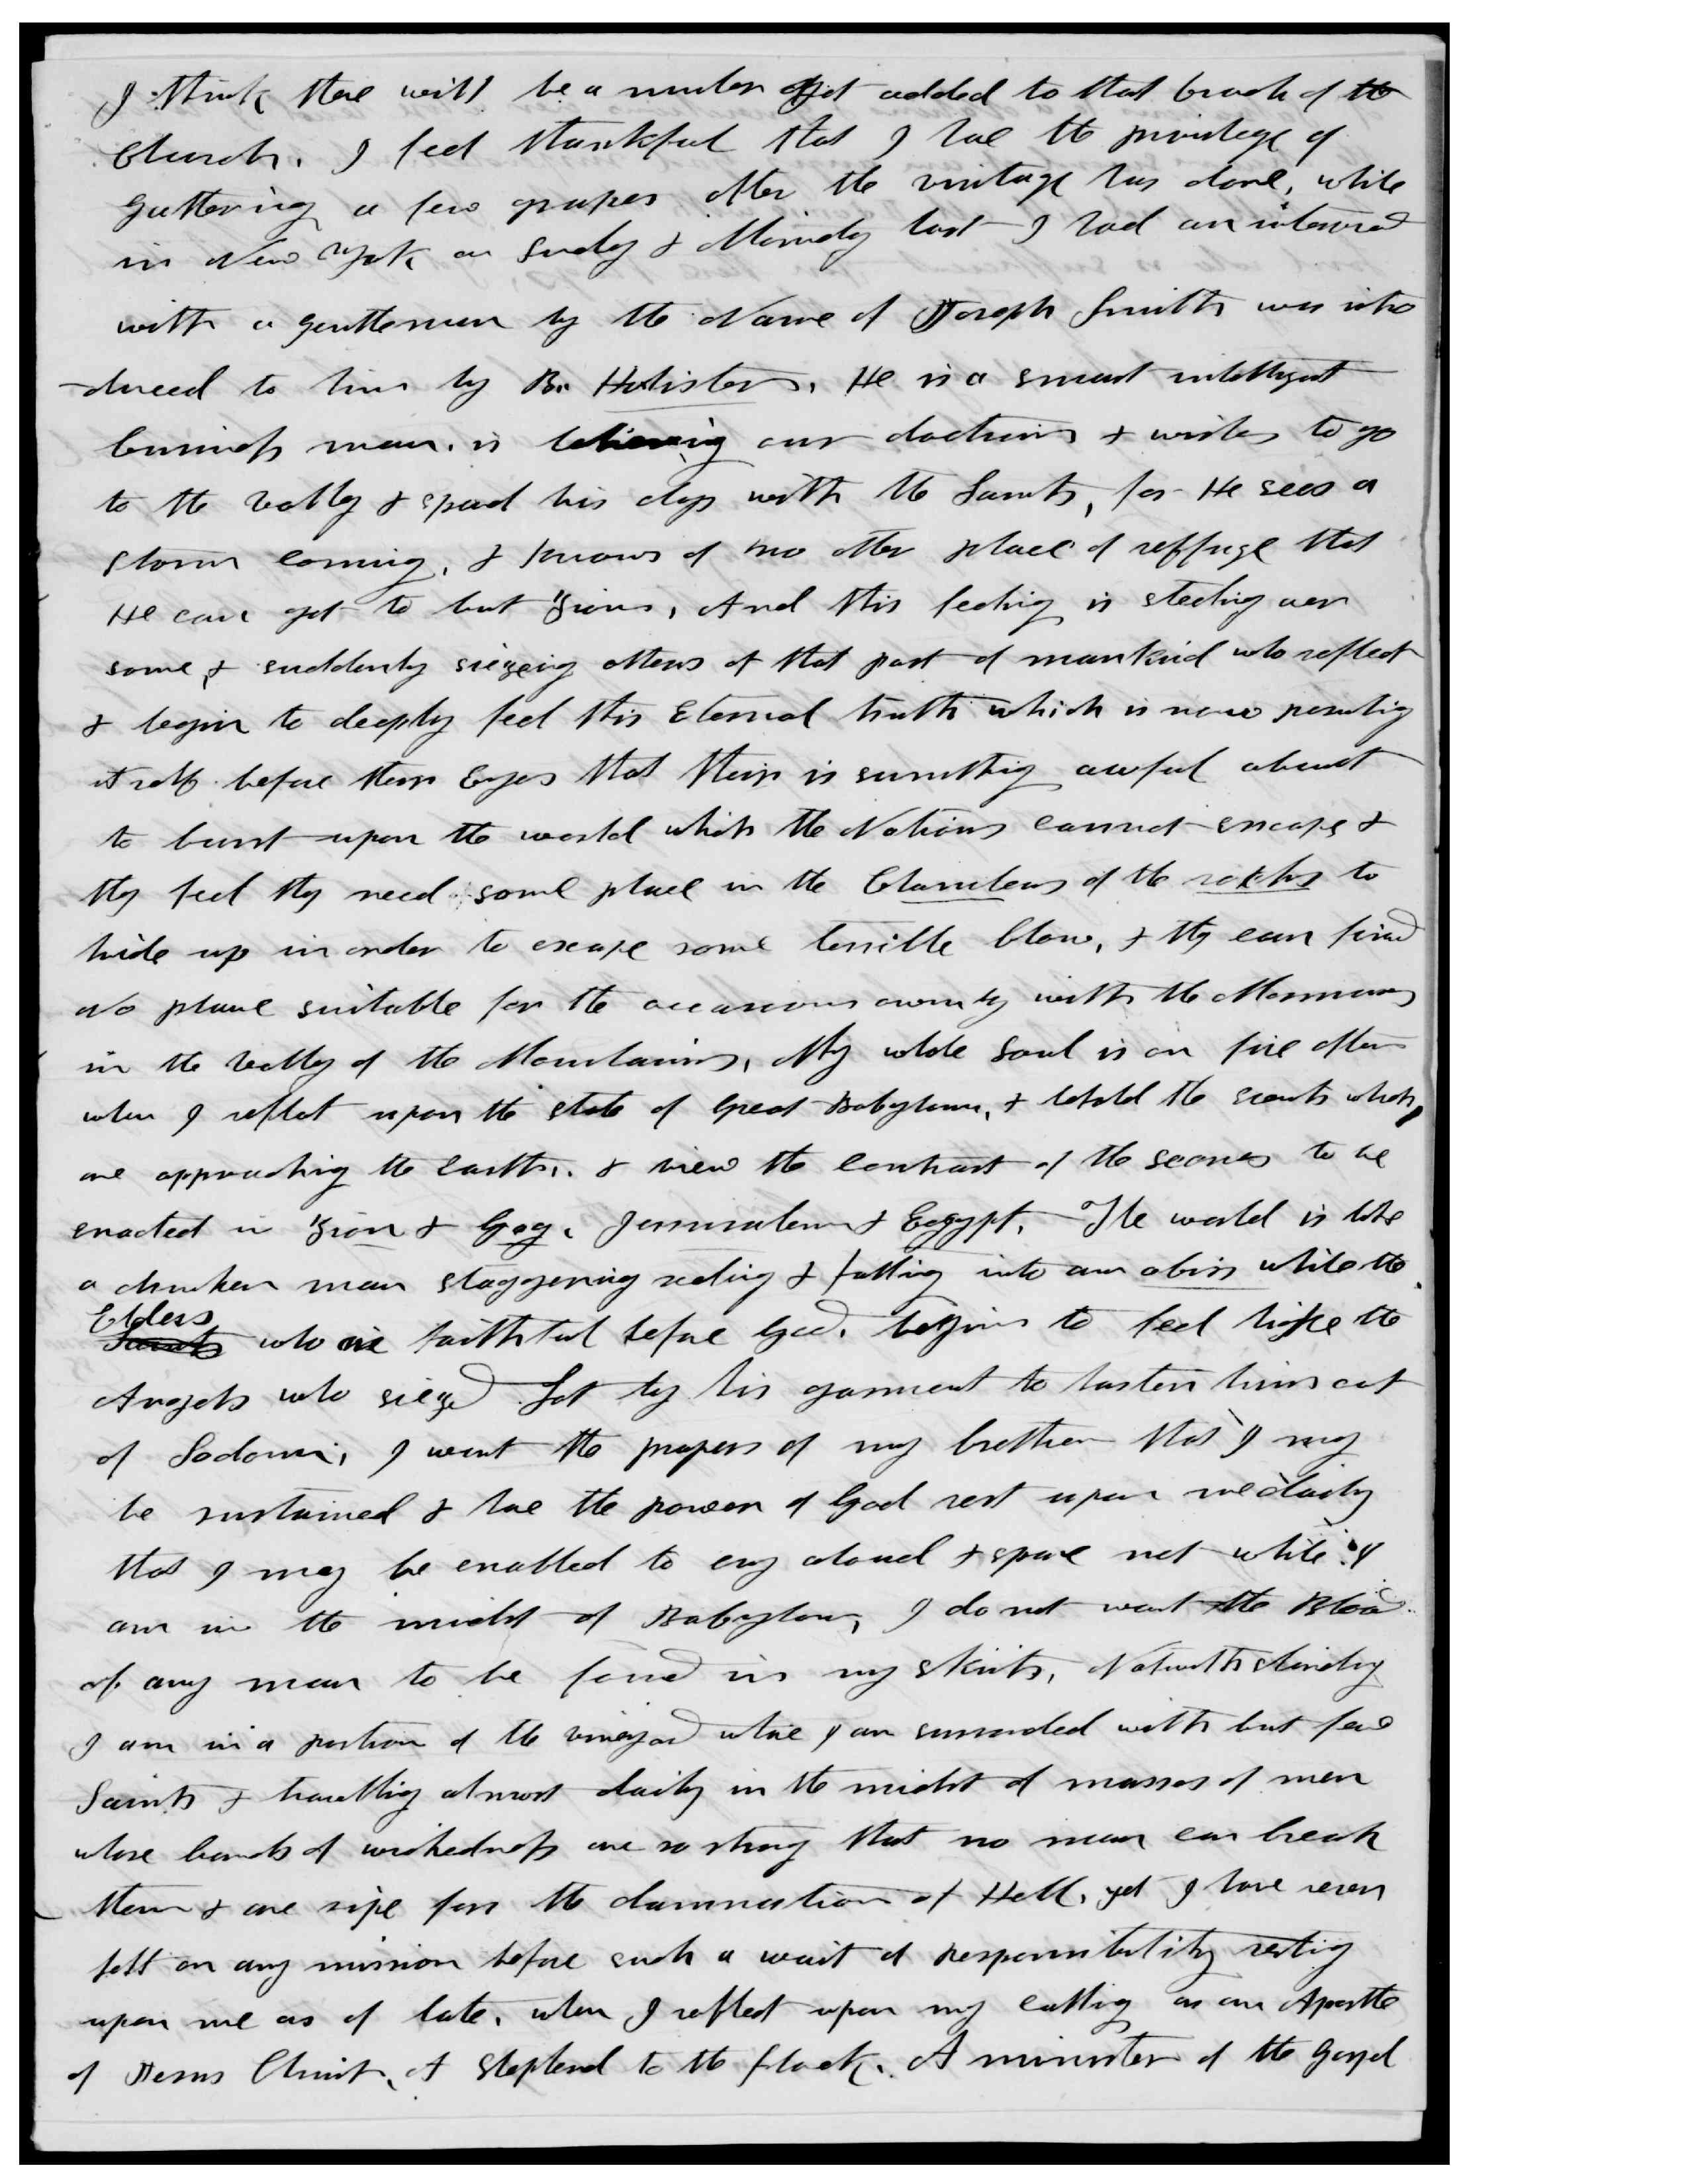 I think there will be a number yet added to that branch of the
Church. I feel thankful that I have the privilege of
gathering a few grapes after the vintage has done, while
in New York on Sunday & Monday last I had an interview
with a gentleman by the Name of Joseph Smith was intro
-duced to him by Br. Hollister. He is a smart intelligent
business man. is believing our doctrins & wishes to go
to the vally & spend his days with the Saints, for He sees a
storm coming, & knows of no other place of reffuge that
He can get to but Zion, And this feeling is steeling over
some & suddenly siezeing others of that part of mankind who reflect
& begin to deeply feel this Eternal truth which is now presenting
itself before their Eyes that their is sumthing awful about
to burst upon the world which the Nations cannot escape &
they feel they need some place in the Chambers of the rocks to
hide up in order to escape some terrible blow, & they can find
No place suitable for the occasion ownly with the Mormons
in the vally of the Mountains, My whole soul is on fire often
when I reflect upon the state of great Babylon, & behold the events which
are approaching the Earth. & view the contrast of the scenes to be
enacted in Zion & Gog. Jerrusalem & Eegypt. The world is like
a drunken man staggering reeling & falling into an abiss while the
Elders
Saints who are faithful before God. begins to feel like the
Angels who siezed Lot by his garment to hasten him out
of Sodom, I want the prayers of my brethren that I may
be sustained & have the power of God rest upon me daily
that I may be enabled to cry aloud & spare not while I
am in the midst of Babylon, I do not want the Blood
of any man to be found in my skirts, Notwithstanding
I am in a portion of the vineyard whare I am surrounded with but few
Saints & travelling almost daily in the midst of masses of men
whose bands of wickedness are so strong that no man can break
them & are ripe for the damnation of Hell, yet I have never
felt on any mission before such a wait of responsibility resting
upon me as of late. when I reflect upon my calling as an Apostle
of Jesus Christ, A Shepherd to the flock. A minister of the gospel